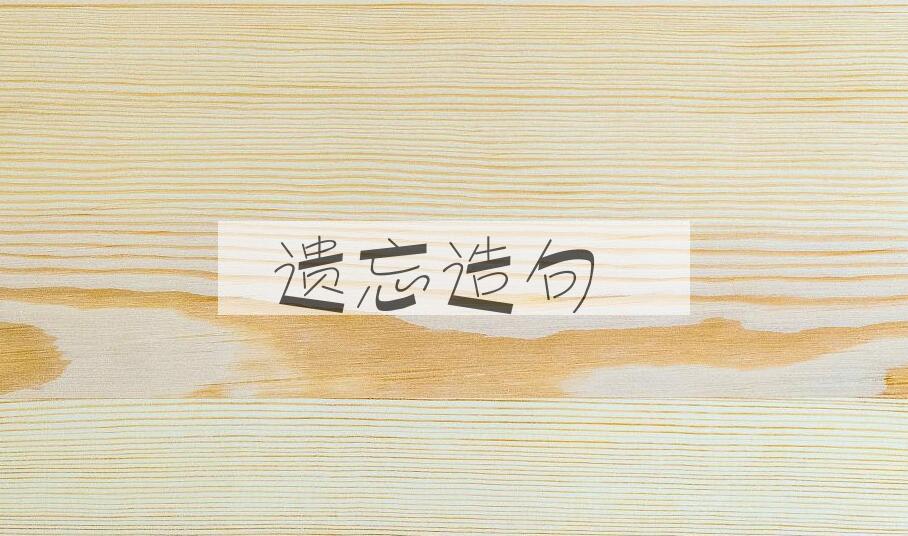 遗忘造句